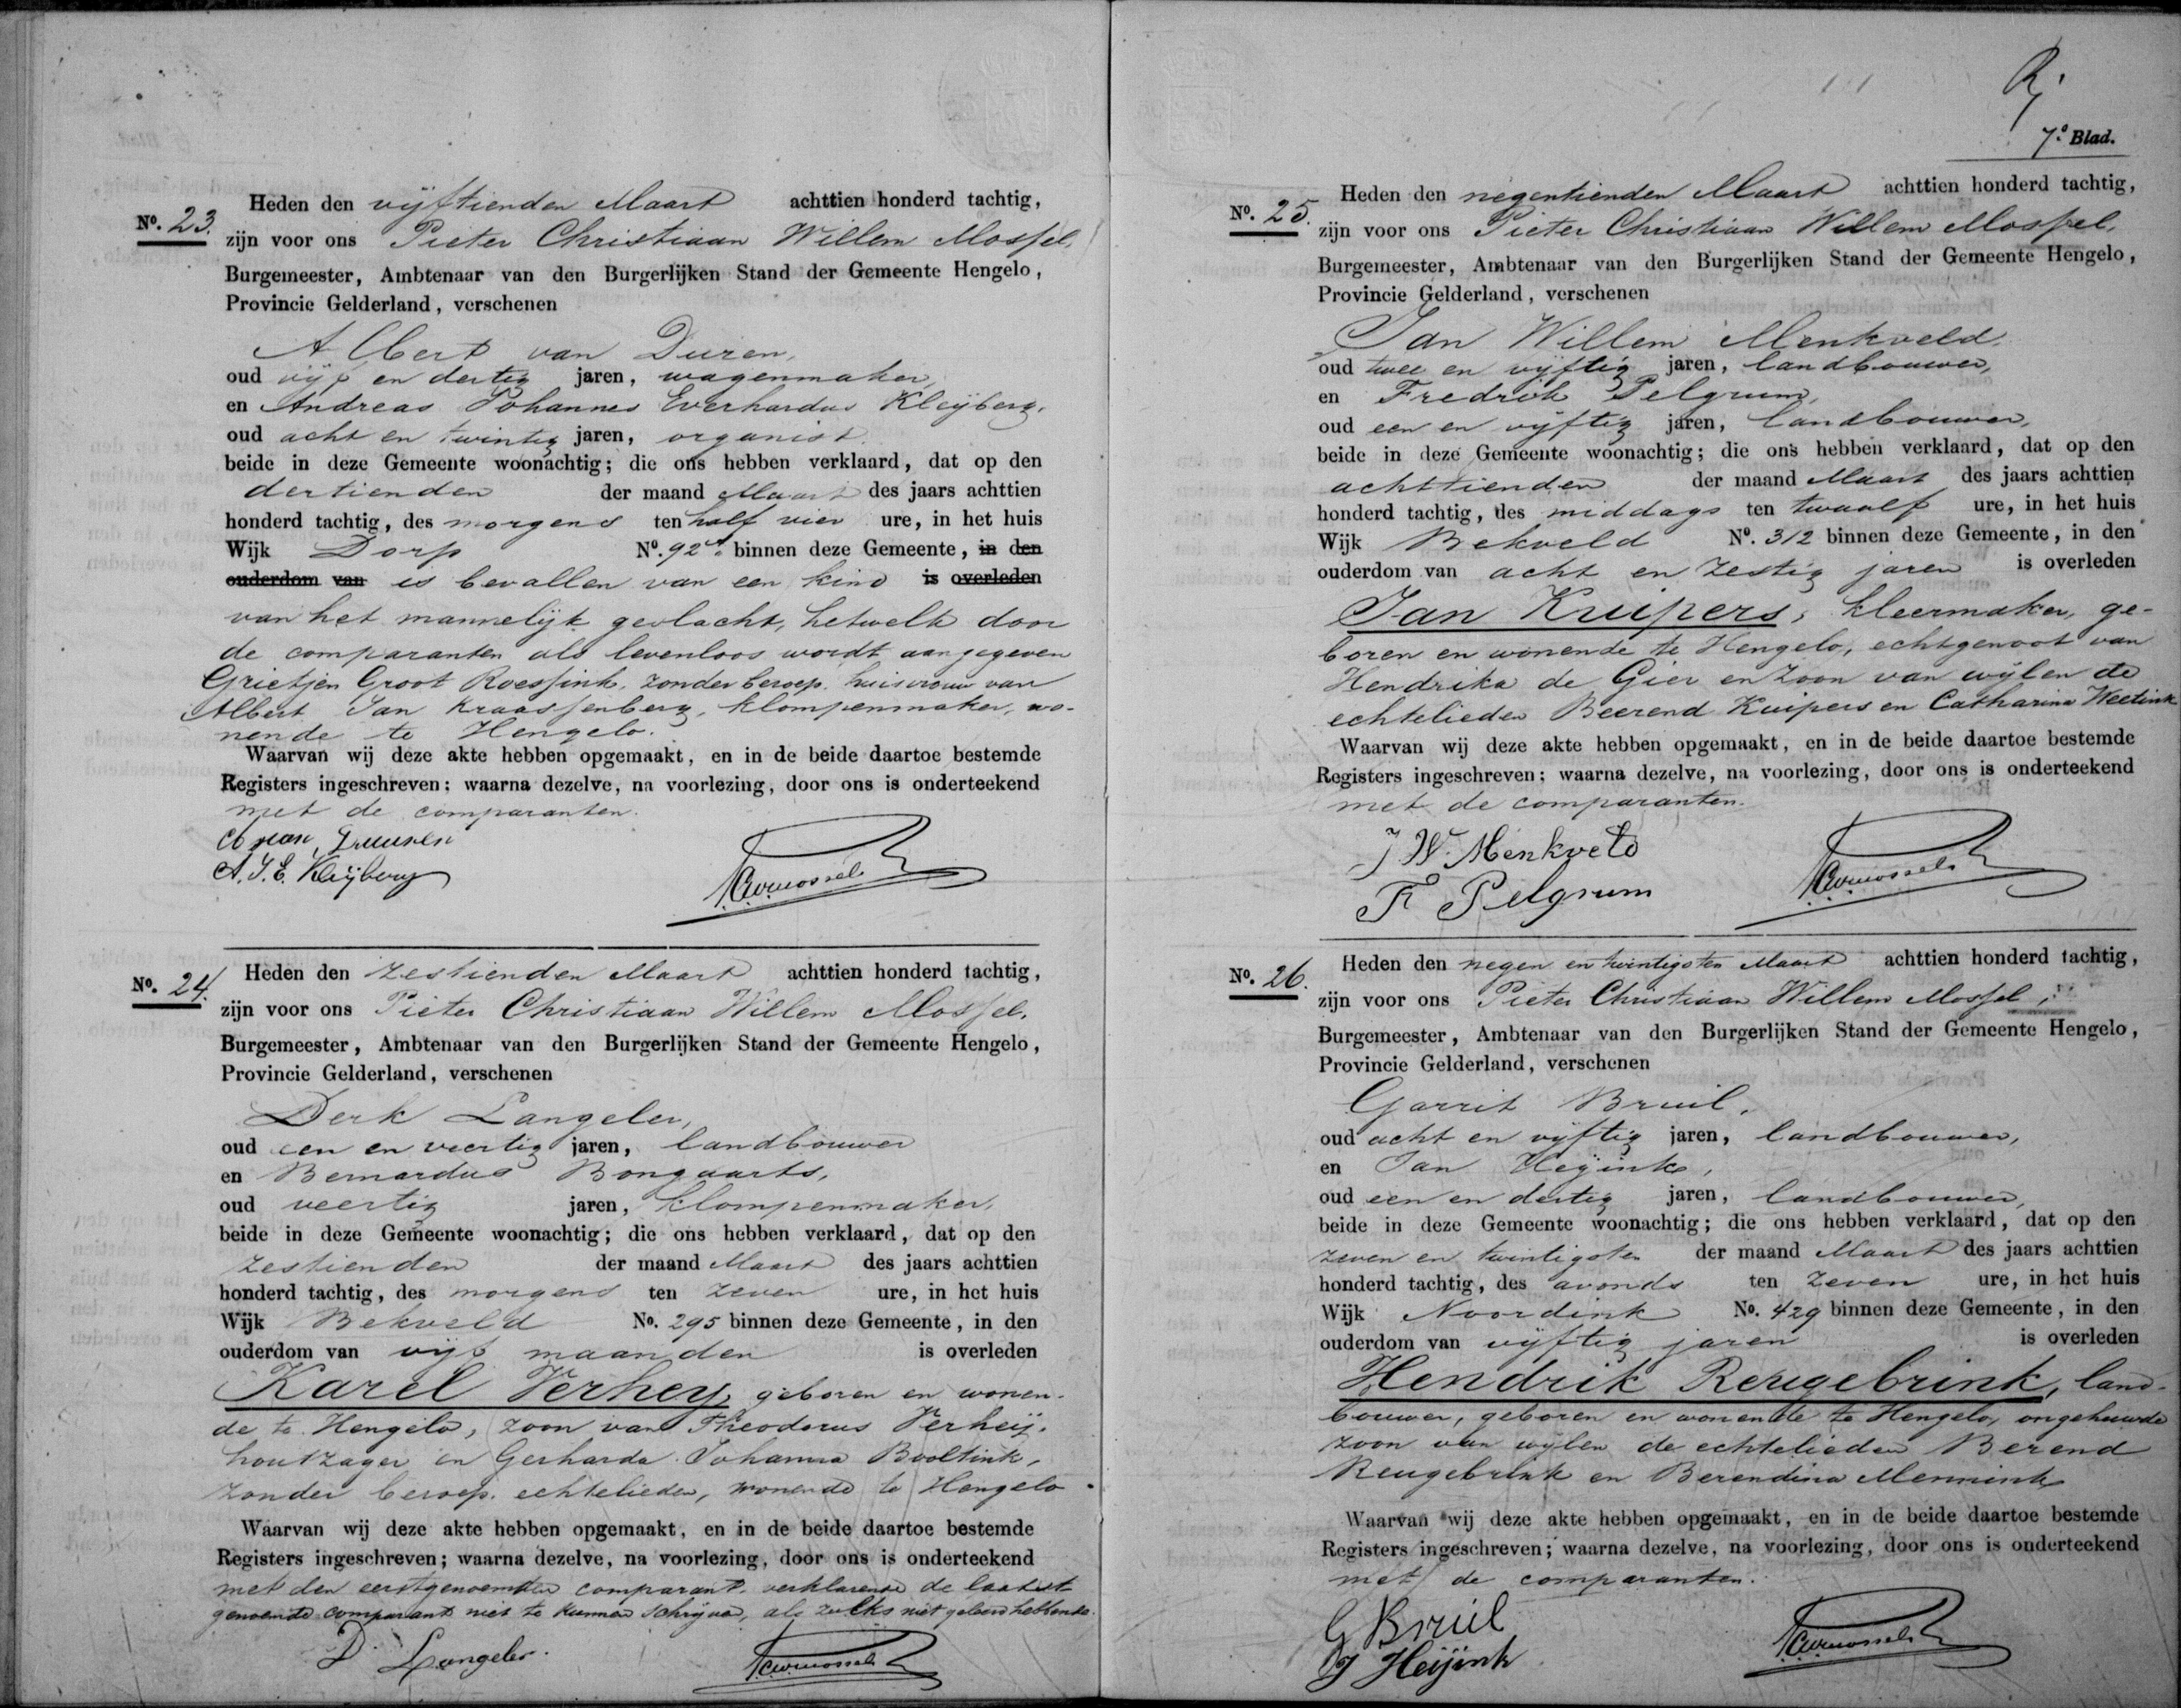 Heden den vijftienden Maart achttien honderd tachtig,
No. 23. zijn voor ons Pieter Christiaan Willem Mossel,
Burgemeester, Ambtenaar van den Burgerlijken Stand der Gemeente Hengelo,
Provincie Gelderland, verschenen
Albert van Duren,
oud vijf en dertig jaren, wagenmaker,
en Andreas Johannes Everhardus Kleijberg,
oud acht en twintig jaren, organist
beide in deze Gemeente woonachtig; die ons hebben verklaard, dat op den
dertienden der maand Maart des jaars achttien
honderd tachtig, des morgens ten half vier ure, in het huis
Wijk Dorp No. 92A. binnen deze Gemeente, in den
ouderdom van is bevallen van een kind is overleden
van het mannelijk geslacht, hetwelk door
de comparanten als levenloos wordt aangegeven
Grietjen Groot Roessink, zonder beroep, huisvrouw van
Albert Jan Kraassenberg, klompenmaker, wo-
nende te Hengelo.
Waarvan wij deze akte hebben opgemaakt, en in de beide daartoe bestemde
Registers ingeschreven; waarna dezelve, na voorlezing, door ons is onderteekend
met de comparanten.
A. J. E. Kleijberg
PCWMossel
No. 24. Heden den zestienden Maart achttien honderd tachtig,
zijn voor ons Pieter Christiaan Willem Mossel,
Burgemeester, Ambtenaar van den Burgerlijken Stand der Gemeente Hengelo,
Provincie Gelderland, verschenen
Derk Langeler,
oud een en veertig jaren, landbouwer
en Bernardus Bongaarts,
oud veertig jaren, klompenmaker,
beide in deze Gemeente woonachtig; die ons hebben verklaard, dat op den
zestienden der maand Maart des jaars achttien
honderd tachtig, des morgens ten zeven ure, in het huis
Wijk Bekveld No. 295 binnen deze Gemeente, in den
ouderdom van vijf maanden is overleden
Karel Verheij, geboren en wonen-
de te Hengelo, zoon van Theodorus Verheij,
houtzager en Gerharda Johanna Booltink,
zonder beroep, echtelieden, wonende te Hengelo.
Waarvan wij deze akte hebben opgemaakt, en in de beide daartoe bestemde
Registers ingeschreven; waarna dezelve, na voorlezing, door ons is onderteekend
met den eerstgenoemden comparant, verklarende de laatst
genoemde comparant niet te kunnen schrijven, als zulks niet geleerd hebbende.
D Langeler.
PCWMossel
7e Blad.
Heden den negentienden Maart achttien honderd tachtig,
No. 25. zijn voor ons Pieter Christiaan Willem Mossel,
Burgemeester, Ambtenaar van den Burgerlijken Stand der Gemeente Hengelo,
Provincie Gelderland, verschenen
Jan Willem Menkveld,
oud twee en vijftig jaren, landbouwer,
en Fredrik Pelgrum,
oud een en vijftig jaren, landbouwer,
beide in deze Gemeente woonachtig; die ons hebben verklaard, dat op den
achttienden der maand Maart des jaars achttien
honderd tachtig, des middags ten twaalf ure, in het huis
Wijk Bekveld No. 312 binnen deze Gemeente, in den
ouderdom van acht en zestig jaren is overleden
Jan Kuipers, kleermaker, ge-
boren en wonende te Hengelo, echtgenoot van
Hendrika de Gier en zoon van wijlen de
echtelieden Beerend Kuipers en Catharina Weetink
Waarvan wij deze akte hebben opgemaakt, en in de beide daartoe bestemde
Registers ingeschreven; waarna dezelve, na voorlezing, door ons is onderteekend
met de comparanten.
J W. Menkveld
F Pelgrum
PCWMossel
No. 26. Heden den negen en twintigsten Maart achttien honderd tachtig,
zijn voor ons Pieter Christiaan Willem Mossel,
Burgemeester, Ambtenaar van den Burgerlijken Stand der Gemeente Hengelo,
Provincie Gelderland, verschenen
Garrit Bruil,
oud acht en vijftig jaren, landbouwer,
en Jan Heijink,
oud een en dertig jaren, landbouwer,
beide in deze Gemeente woonachtig; die ons hebben verklaard, dat op den
zeven en twintigsten der maand Maart des jaars achttien
honderd tachtig, des avonds ten zeven ure, in het huis
Wijk Noordink No. 429 binnen deze Gemeente, in den
ouderdom van vijftig jaren is overleden
Hendrik Reugebrink, land-
bouwer, geboren en wonende te Hengelo, ongehuwde
zoon van wijlen de echtelieden Berend
Reugebrink en Berendina Mennink
Waarvan wij deze akte hebben opgemaakt, en in de beide daartoe bestemde
Registers ingeschreven; waarna dezelve, na voorlezing, door ons is onderteekend
met de comparanten.
G Bruil
J Heijink
PCWMossel